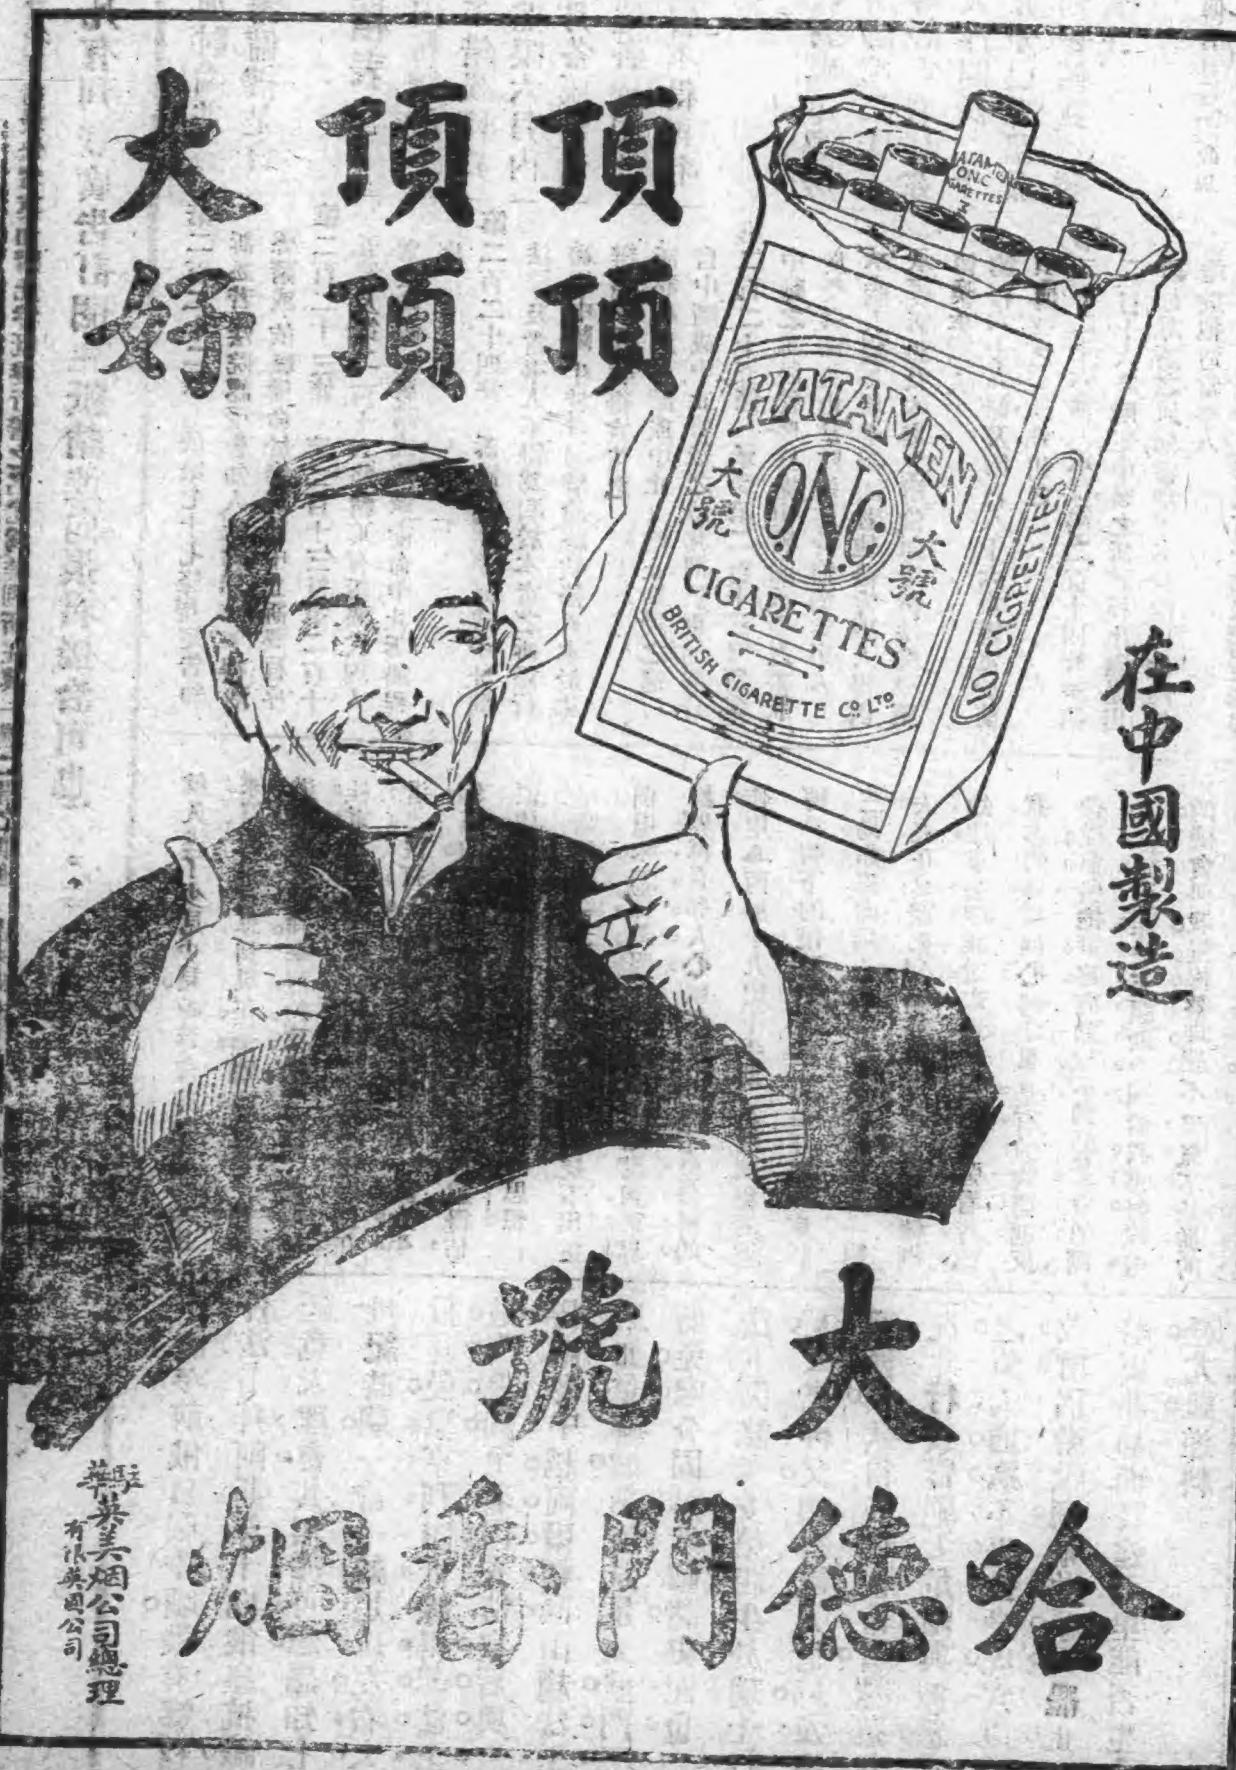 頂頂大
頂頂好
HATAMEN
O.N.C.
CIGARETTES
大號
大號
O.N.C.
CIGARETTES
BRITISH CIGARETTE CO LTD
10 CIGARETTES
在中國製造
大號
哈德門香烟
駐華英美烟公司總理
有限英國公司